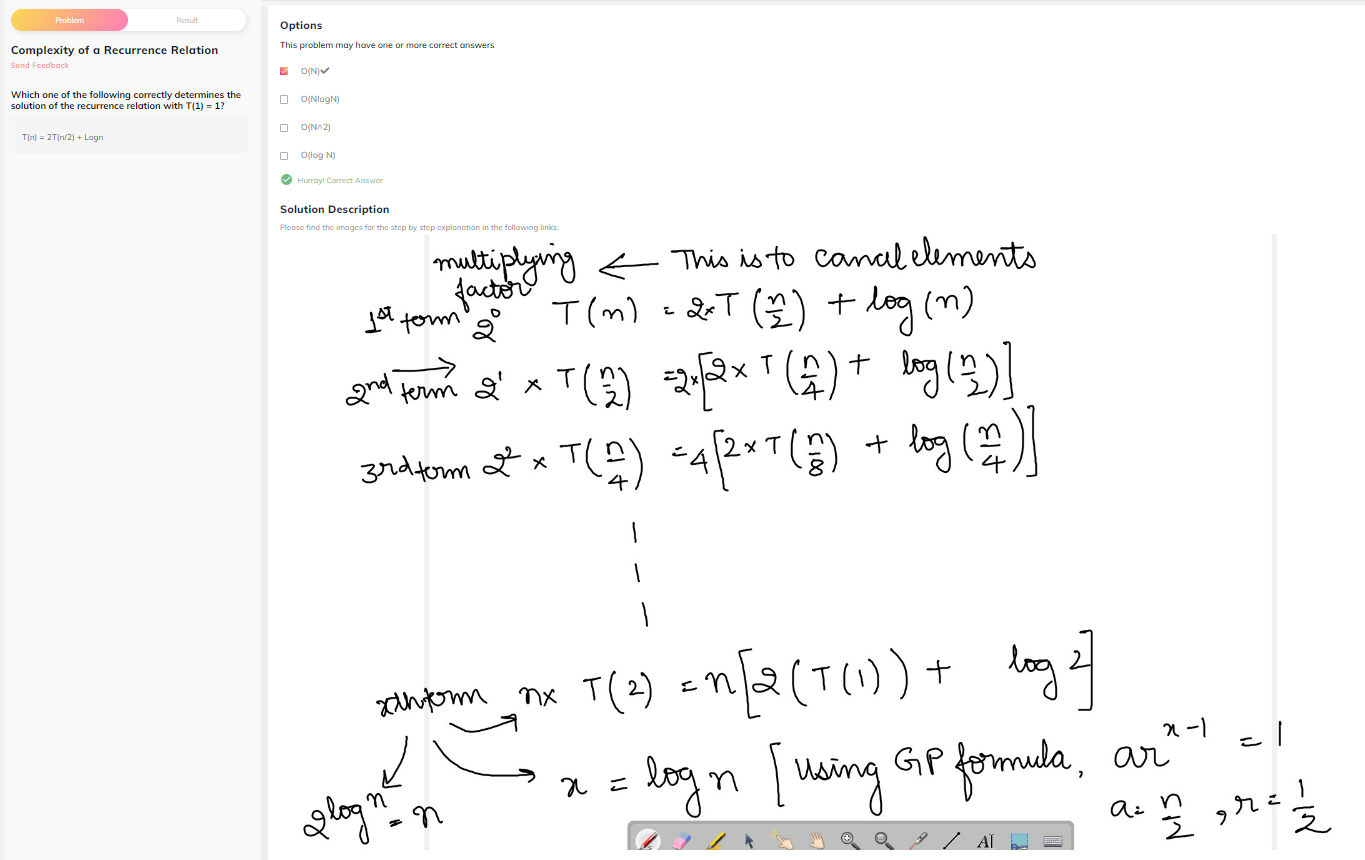 Problem
Result
Complexity of a Recurrence Relation
Send Feedback
Which one of the following correctly determines the
solution of the recurrence relation with T(1) = 1?
T(n) = 2T(n/2) + Logn
Options
This problem may have one or more correct answers
O(N)✔
O(NlogN)
O(N^2)
O(log N)
Hurray! Correct Answer
Solution Description
Please find the images for the step by step explanation in the following links:
multiplying factor ← This is to cancel elements
1st term 2⁰ T(n) = 2×T(n/2) + log(n)
2nd term 2¹ × T(n/2) =2×[2× T(n/4) + log(n/2)]
3rd term 2² × T(n/4) =4[2×T(n/8) + log(n/4)]
xth term n× T(2) =n[2(T(1)) + log 2]
x = log n [using GP formula, ar^(x-1) = 1
2^log n = n
a= n/2, r= 1/2
AI